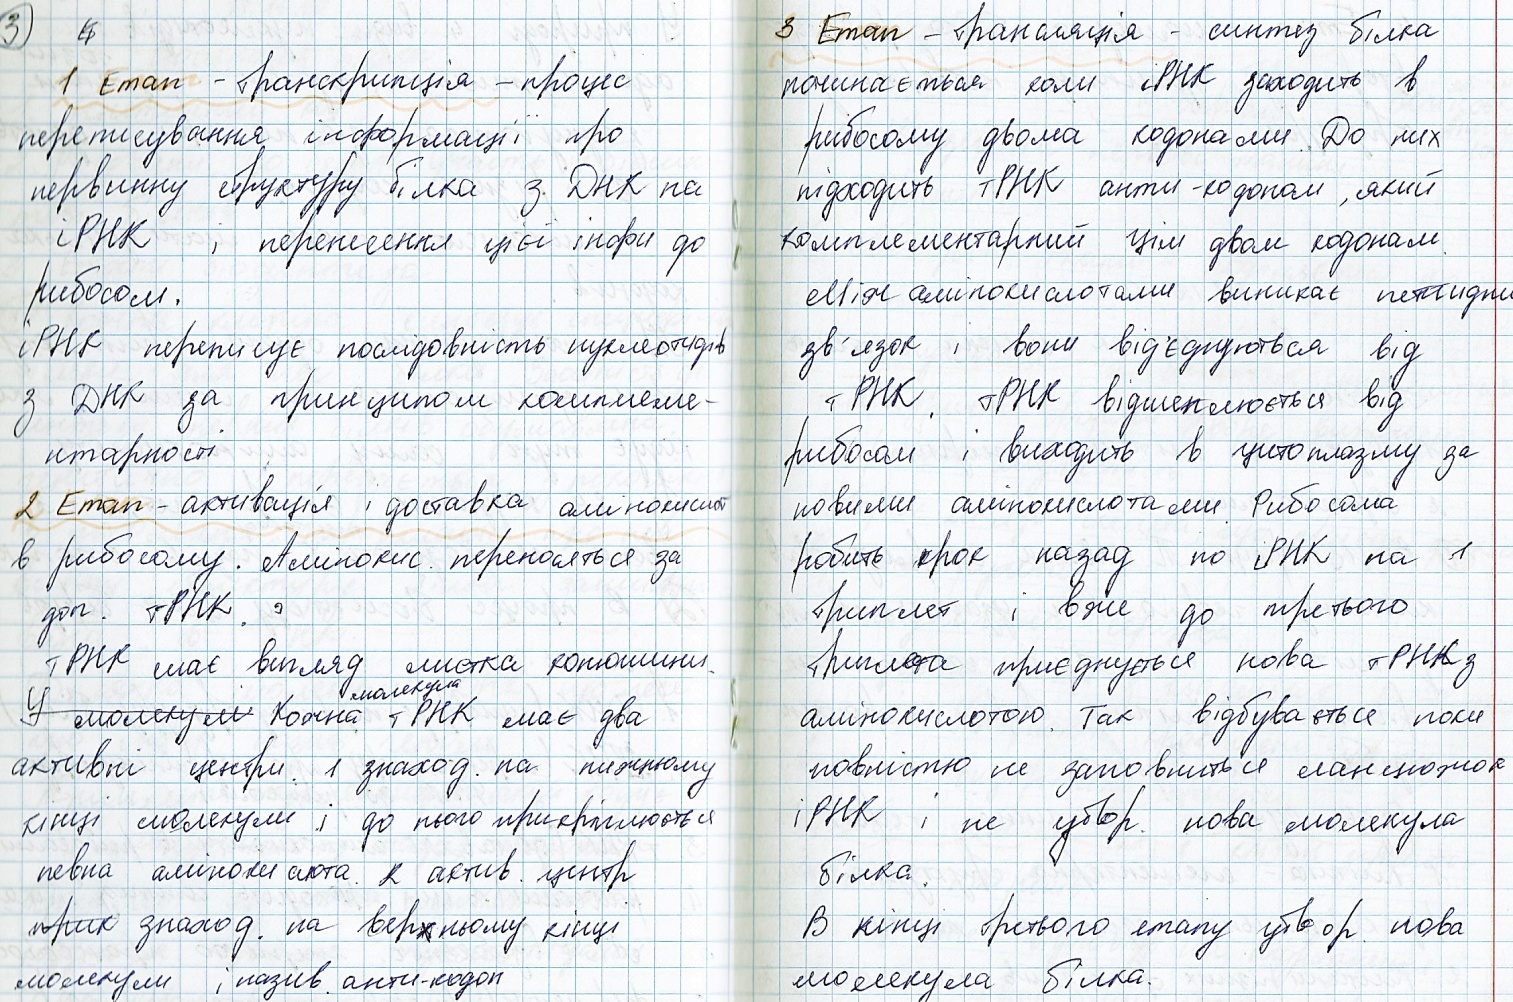 3
1 Етап - транскрипція - процес
переписування інформації про
первинну структуру білка з ДНК на
іРНК і перенесення цієї інфи до
рибосом.
іРНК переписує послідовність нуклеотидів
з ДНК за принципом комплеме-
нтарності
2 Етап - активація і доставка амінокислот
в рибосому. Амінокис. переносяться за
доп. тРНК.
тРНК має вигляд листка конюшини.
У молекули Кожна молекула тРНК має два
активні центри. 1 знаход. на нижньому
кінці молекули і до нього прикріплюється
певна амінокислота. 2 актив. центр
прик знаход. на верхньому кінці
молекули і назив. анти-кодон
3 Етап - трансляція - синтез білка
починається коли іРНК заходить в
рибосому двома кодонами. До них
підходить тРНК анти-кодоном, який
комплементарний цім двом кодонам.
Між амінокислотами виникає пептидний
зв'язок і вони від'єднуються від
тРНК. тРНК відщеплюється від
рибосом і виходить в цитоплазму за
новими амінокислотами. Рибосома
робить крок назад по іРНК на 1
триплет і вже до третього
триплета приєднується нова тРНК з
амінокислотою. Так відбувається поки
повністю не заповниться ланцюжок
іРНК і не утвор. нова молекула
білка.
В кінці третього етапу утвор. нова
молекула білка.